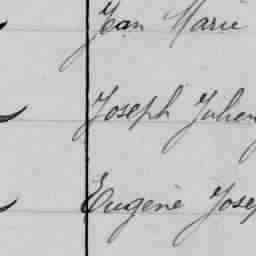 Jean Marie
Joseph Julien
Eugène Josep